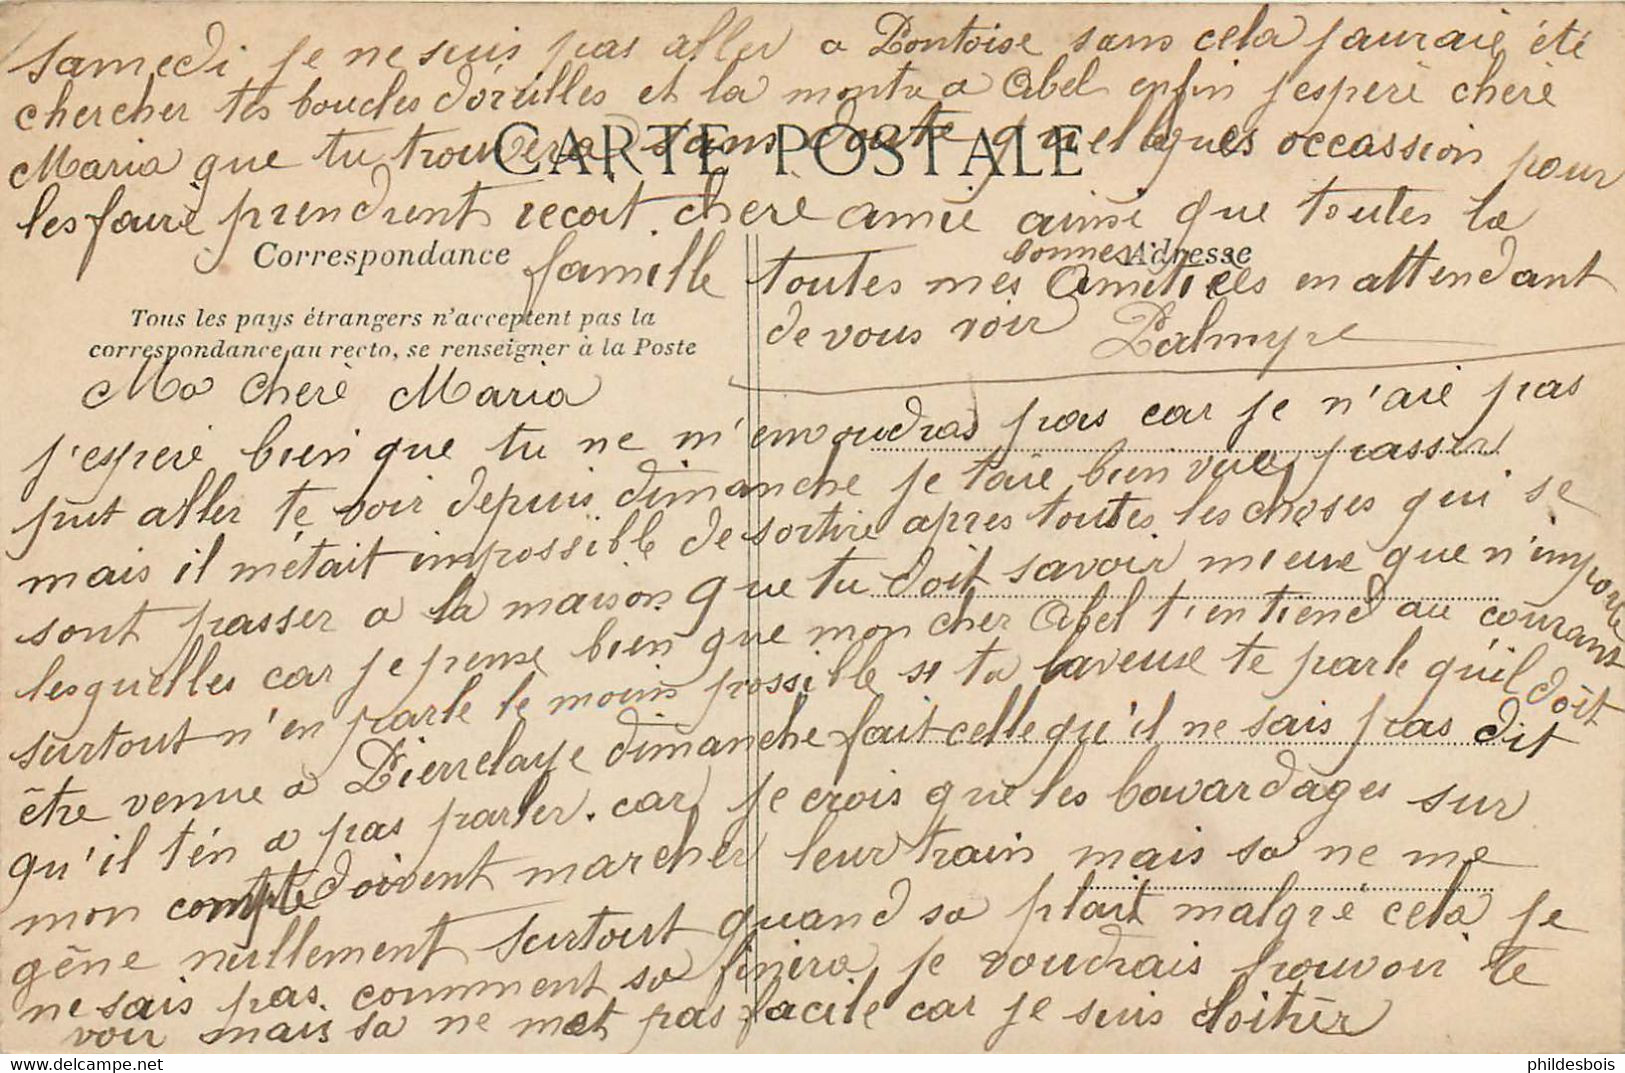 Samedi je ne suis pas aller a Pontoise sans cela jauraie été
chercher tes boucles d'oreilles et la montre a Abel enfin jesperè cherè
Maria que tu trouvera sans doute quellques occassion pour
les fairè prendrent recoit cherè amie ainsi que toutes la
famille toutes mes bonnes Amitiees en attendant
de vous voir Palmyre
CARTE POSTALE
Correspondance
Adresse
Tous les pays étrangers n'acceptent pas la
correspondance au recto, se renseigner à la Poste
Ma cherè Maria
j'esperè bien que tu ne m'en voudras pas car je n'aie pas
put aller te voir depuis dimanche je taie bien vuee passer
mais il m'était impossible de sortire apres toutes les choses qui se
sont passer a la maison que tu doit savoir mieux que n'importe
lesquelles car je pense bien que mon cher Abel t'entiend au courant
surtout n'en parle le moins possible si ta laveuse te parle qu'il doit
être venue a Pierrelaye dimanche fait celle qu'il ne sais pas dit
qu'il tén a pas parler. car je crois que les bavardages sur
mon compte doivent marcher leur train mais sa ne me
gêne nullement surtout quand sa plait malgré cela je
ne sais pas comment sa finira je voudrais pouvoir te
voir mais sa ne met pas facile car je suis cloitrèr
phildesbois